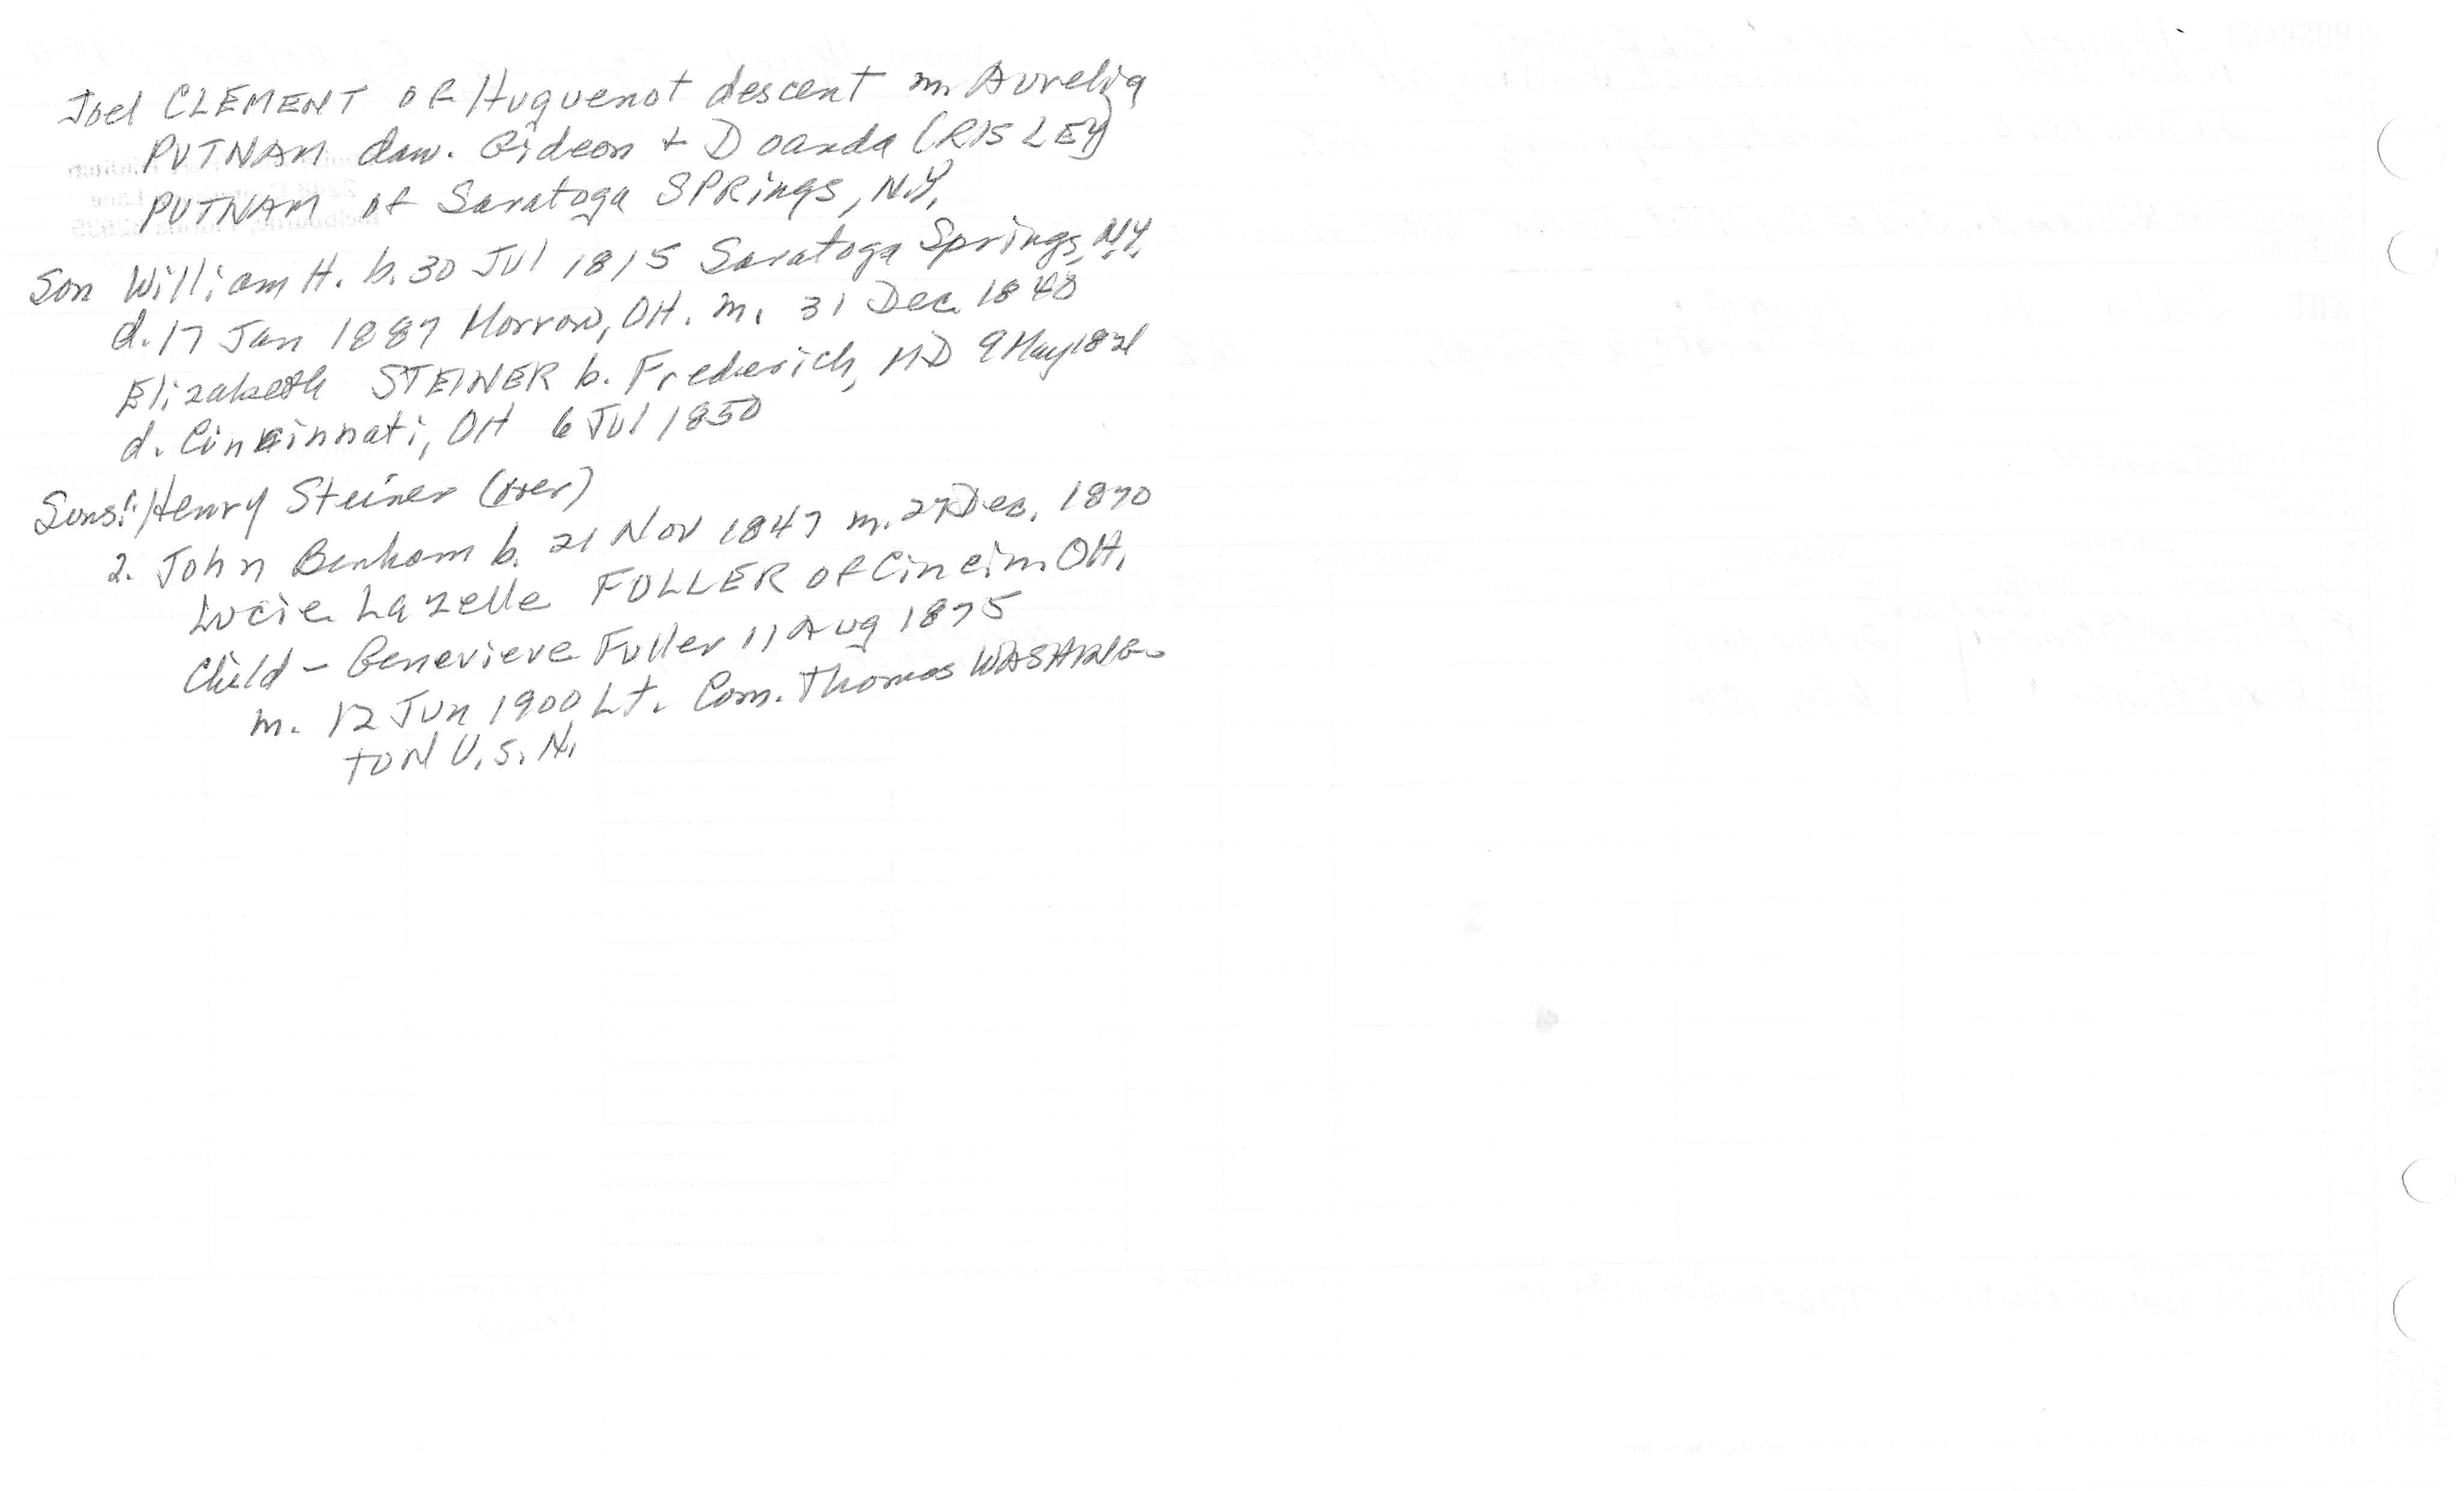 Joel CLEMENT OF Huguenot descent m. Aurelia
PUTNAM dau. Gideon + Doanda (RISLEY)
PUTNAM of Saratoga SPRings, N.Y.
Son William H. b. 30 Jul 1815 Saratoga Springs, N.Y.
d. 17 Jan 1887 Morrow, OH. m. 31 Dec. 1840
Elizabeth STEINER b. Frederich, MD 9 May 1821
d. Cincinnati, OH 6 Jul 1850
Sons: 1. Henry Steiner (over)
2. John Benham b. 21 Nov 1847 m. 27 Dec. 1870
Lucie Lazelle FULLER OF Cincinn. OH.
Child - Genevieve Fuller 11 Aug 1875
m. 12 Jun 1900 Lt. Com. Thomas WASHING-
TON U.S.N.